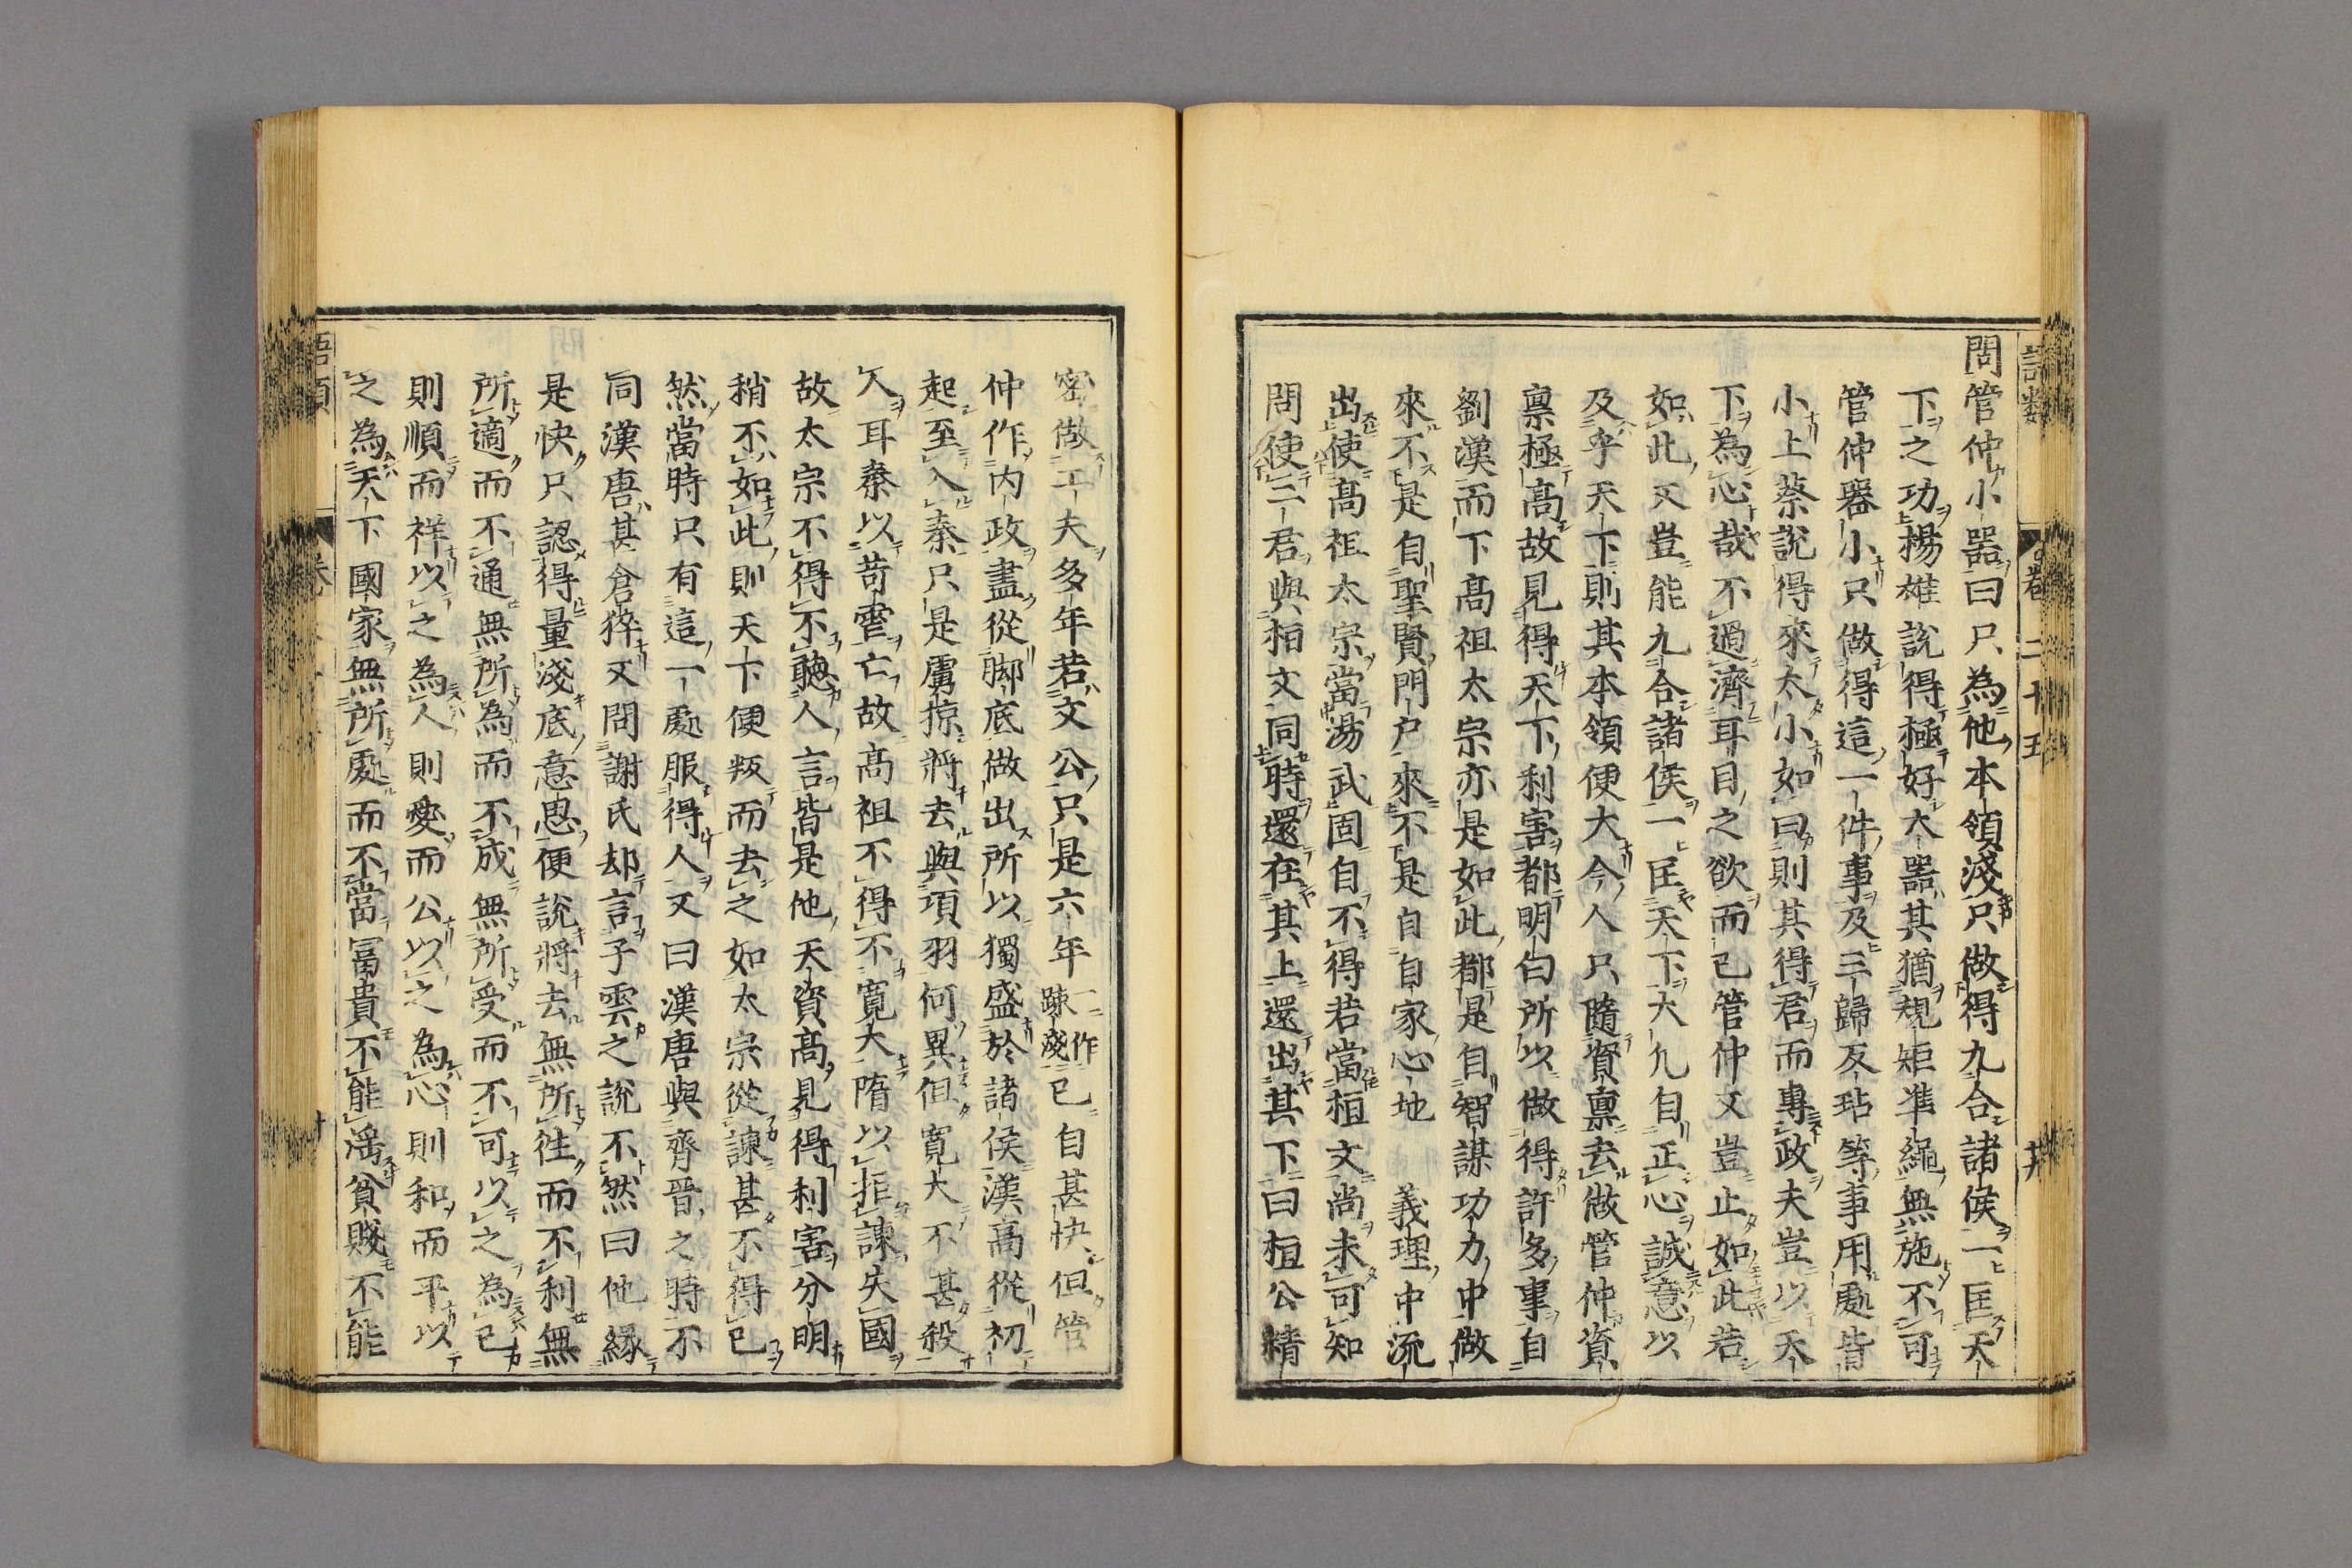 語類 卷二十五 廿六
問管仲小器曰只為他本領淺只做得九合諸侯一匡天
下之功揚雄說得極好大器其猶規矩準繩無施不可
管仲器小只做得這一件事及三歸反坫等事用處皆
小上蔡說得來太小如曰則其得君而專政夫豈以天
下為心哉不過濟耳目之欲而已管仲又豈止如此若
如此又豈能九合諸侯一匡天下大凡自正心誠意以
及乎天下則其本領便大今人只隨資稟去做管仲資
稟極高故見得天下利害都明白所以做得許多事自
劉漢而下高祖太宗亦是如此都是自智謀功力中做
來不是自聖賢門戶來不是自自家心地義理中流
出使高祖太宗當湯武固自不得若當桓文尚未可知
問使二君與桓文同時還在其上還出其下曰桓公精
密做工夫多年若文公只是六年一作疎淺已自甚快但管
仲作內政盡從腳底做出所以獨盛於諸侯漢高從初
起至入秦只是虜掠將去與項羽何異但寬大不甚殺
人耳秦以苛虐亡故高祖不得不寬大隋以拒諫失國
故太宗不得不聽人言皆是他天資高見得利害分明
稍不如此則天下便叛而去之如太宗從諫甚不得已
然當時只有這一處服得人又曰漢唐與齊晉之時不
同漢唐甚倉猝又問謝氏却言子雲之說不然曰他緣
是快只認得量淺底意思便說將去無所往而不利無
所適而不通無所為而不成無所受而不可以之為己
則順而祥以之為人則愛而公以之為心則和而平以
之為天下國家無所處而不當富貴不能淫貧賤不能
語類